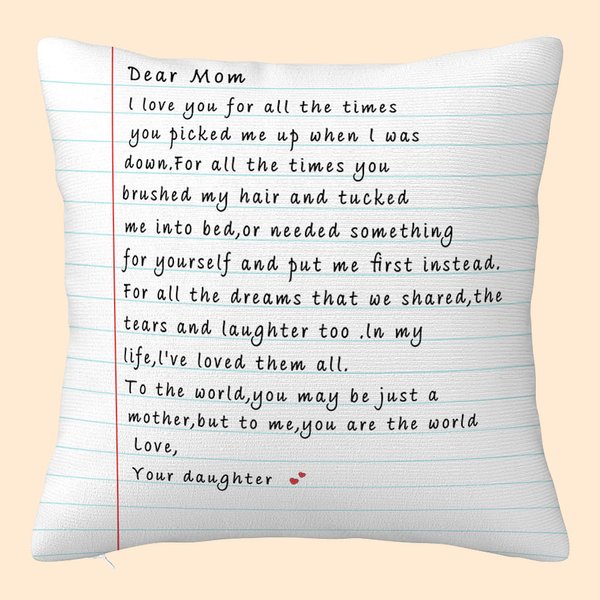 Dear Mom
I love you for all the times
you picked me up when I was
down.For all the times you
brushed my hair and tucked
me into bed,or needed something
for yourself and put me first instead.
For all the dreams that we shared,the
tears and laughter too .In my
life,I've loved them all.
To the world,you may be just a
mother,but to me,you are the world
Love,
Your daughter